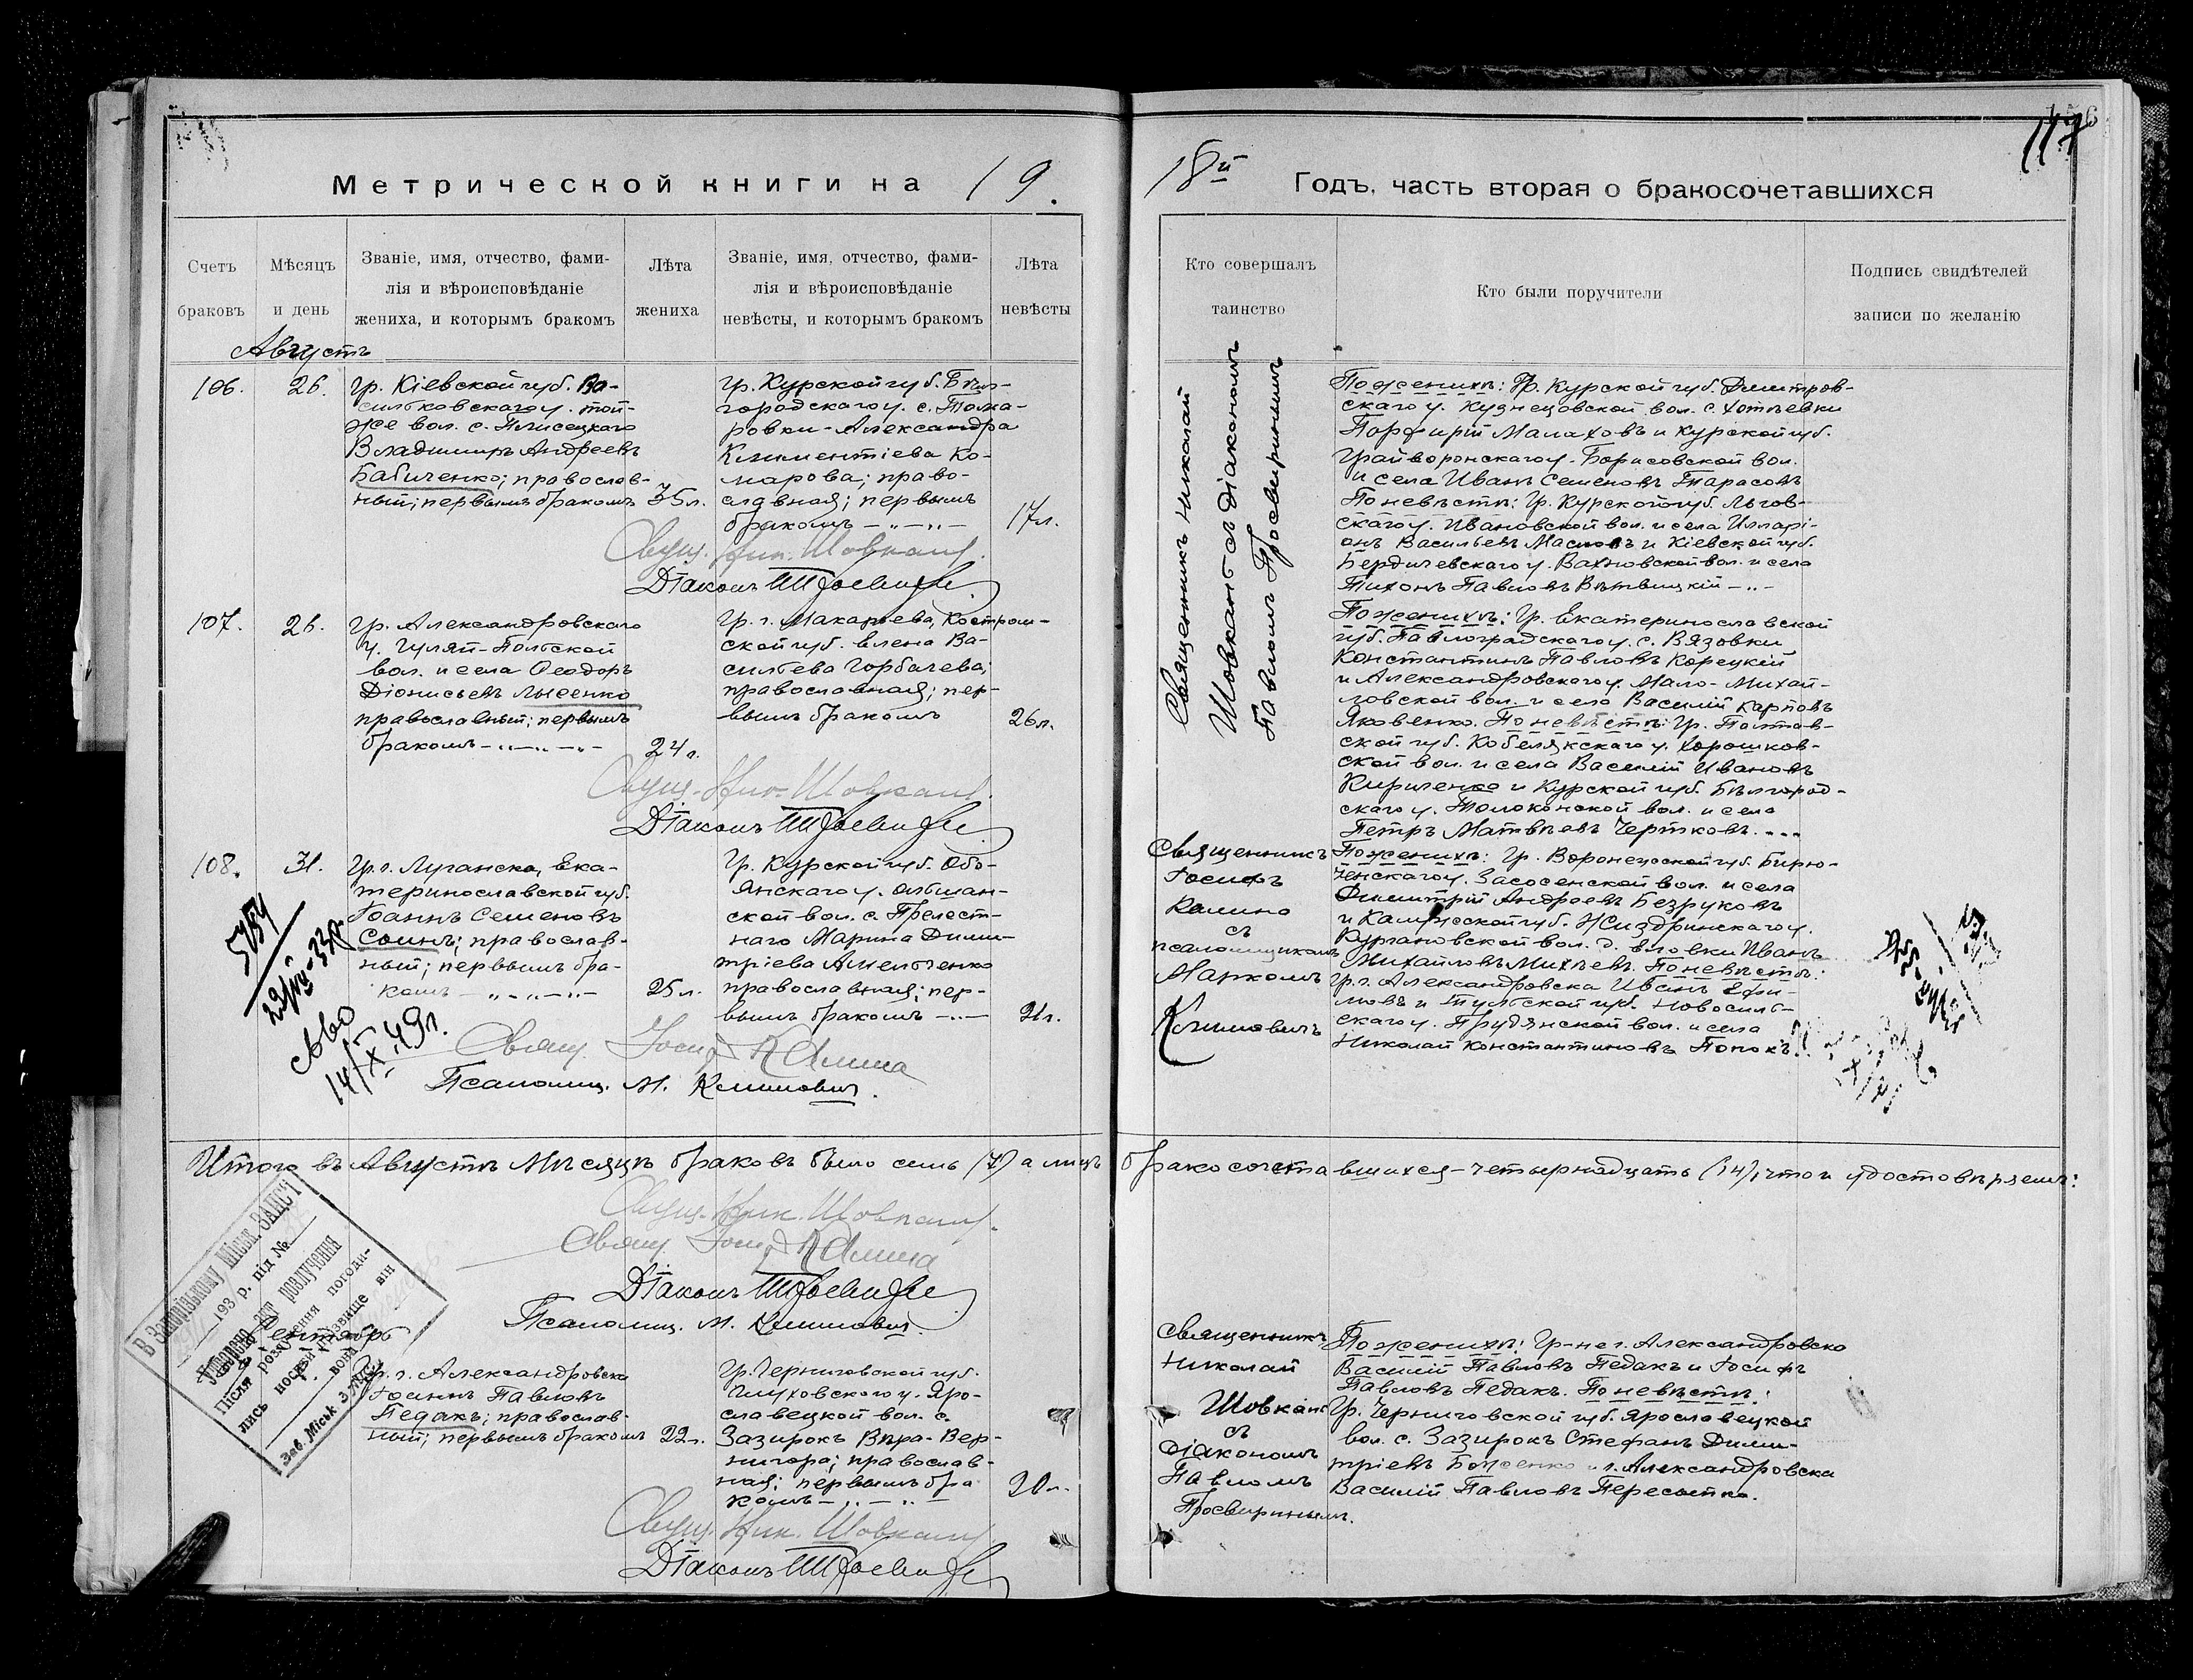 Метрической книги на 19.
18й Годъ, часть вторая о бракосочетавшихся
117
Счетъ
браковъ
Мѣсяцъ
и день
Званіе, имя, отчество, фами-
лія и вѣроисповѣданіе
жениха, и которымъ бракомъ
Лѣта
жениха
Званіе, имя, отчество, фами-
лія и вѣроисповѣданіе
невѣсты, и которымъ бракомъ
Лѣта
невѣсты
Кто совершалъ
таинство
Кто были поручители
Подпись свидѣтелей
записи по желанію
Августъ
106.
26.
Гр. Кіевской губ. Ва-
сильковскаго у. той-
же вол. с. Плисецкаго
Владимиръ Андреевъ
Бабиченко; православ-
ный; первымъ бракомъ
35л.
Гр. Курской губ. Бѣл-
городскаго у. с. Тома-
ровки - Александра
Климентіева Ко-
марова; право-
славная; первымъ
бракомъ - „ - „ -
17л.
Свящ. Ник. Шовкань.
Діаконъ
Священникъ Николай
Шовкань съ діакономъ
Павломъ Просвиринымъ
По женихѣ: Гр. Курской губ. Димитров-
скаго у. Кузнецовской вол. с. Хотѣевки
Порфирій Малаховъ и Курской губ.
Грайворонскаго у. Борисовской вол.
и села Иванъ Семеновъ Тарасовъ
По невѣстѣ: Гр. Курской губ. Льгов-
скаго у. Ивановской вол. и села Илларі-
онъ Васильевъ Масловъ и Кіевской губ.
Бердичевскаго у. Вахновской вол. и села
Тихонъ Павловъ Вѣтвицкій - „ -
107.
26.
Гр. Александровскаго
у. Гуляй-Польской
вол. и села Ѳеодоръ
Діонисьевъ Лысенко
православный; первымъ
бракомъ - „ - „ - „ -
24л.
Гр. г. Макарьева, Костром-
ской губ. Елена Ва-
сильева Горбачева;
православная; пер-
вымъ бракомъ
26л.
Свящ. Ник. Шовкань.
Діаконъ
По женихѣ: Гр. Екатеринославской
губ. Павлоградскаго у. с. Вязовки
Константинъ Павловъ Корецкій
и Александровскаго у. Мало-Михай-
ловской вол. и села Василій Карповъ
Яковенко. По невѣстѣ: Гр. Полтав-
ской губ. Кобелякскаго у. Хорошков-
ской вол. и села Василій Ивановъ
Кириленко и Курской губ. Бѣлгород-
скаго у. Толоконской вол. и села
Петръ Матвѣевъ Чертковъ.
108.
31.
Гр. г. Луганска, Ека-
теринославской губ.
Іоаннъ Семеновъ
Соинъ; православ-
ный; первымъ бра-
комъ - „ - „ - „ -
25л.
Гр. Курской губ. Обо-
янскаго у. Ольшан-
ской вол. с. Прелест-
наго Марина Дими-
тріева Амельченко
православная; пер-
вымъ бракомъ - „ -
21л.
Свящ. Іосиф Калина
Псаломщ. М. Климович.
Священникъ
Іосифъ
Калина
съ
псаломщикомъ
Маркомъ
Климовичъ
По женихѣ: Гр. Воронежской губ. Бирю-
ченскаго у. Засосенской вол. и села
Димитрій Андреевъ Безруковъ
и Калужской губ. Жиздринскаго у.
Кургановской вол. д. Еловки Иванъ
Михайловъ Михѣевъ. По невѣстѣ:
Гр. г. Александровска Иванъ Ефи-
мовъ и Тульской губ. Новосиль-
скаго у. Прудянской вол. и села
Николай Константиновъ Попокъ.
Итого въ Августѣ мѣсяцѣ браковъ было семь (7) а лицъ бракосочетавшихся - четырнадцать (14), что и удостовѣряемъ:
Свящ. Ник. Шовкань.
Свящ. Іосиф Калина
Діаконъ
Псаломщ. М. Климович.
В Запорізькому Міськ. ЗАЦСТ
193 р. під №
Утворено акт розлучення
Після розлучення погоди-
лись носити прізвище він
вона
Зав. Міськ. ЗАЦСТ
Сентябрь
Гр. г. Александровска
Іоаннъ Павловъ
Педакъ; православ-
ный; первымъ бракомъ
22л.
Гр. Черниговской губ.
Глуховскаго у. Яро-
славецкой вол. с.
Зазирокъ Вѣра Вер-
нигора; православ-
ная; первымъ бра
комъ - „ - „ -
20л.
Свящ. Ник. Шовкань
Діаконъ
Священникъ
Николай
Шовкань
съ
діакономъ
Павломъ
Просвиринымъ.
По женихѣ: Гр-не г. Александровска
Василій Павловъ Педакъ и Іосифъ
Павловъ Педакъ. По невѣстѣ:
Гр. Черниговской губ. Ярославецкой
вол. с. Зазирокъ Стефанъ Дими-
тріевъ Боженко и г. Александровска
Василій Павловъ Пересыпка.